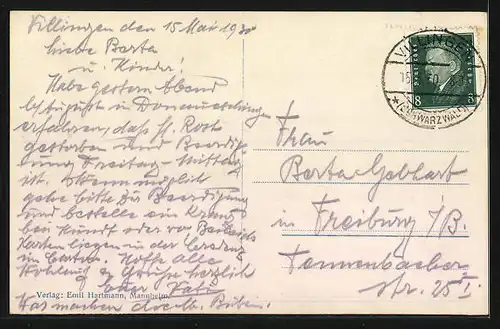 Villingen den 15 Mai 1930
Liebe Berta
u. Kinder!
Habe gestern Abend
in Donaueschingen
erfahren, daß H. Rost
gestorben und Beerdi-
gung Freitag-Mittag
ist. Wenn möglich
gehe bitte zur Beerdigung
und bestelle ein Kranz
bei Kundt oder
Karten liegen in der
im Hoffe alle
wohlauf Grüße herzlich
euer Vati
Was machen Buben.
Verlag: Emil Hartmann, Mannheim
VILLINGEN
(SCHWARZWALD)
8 8
Frau
Berta Gebhart
in Freiburg i/B.
Tennenbacher
str. 25 I.